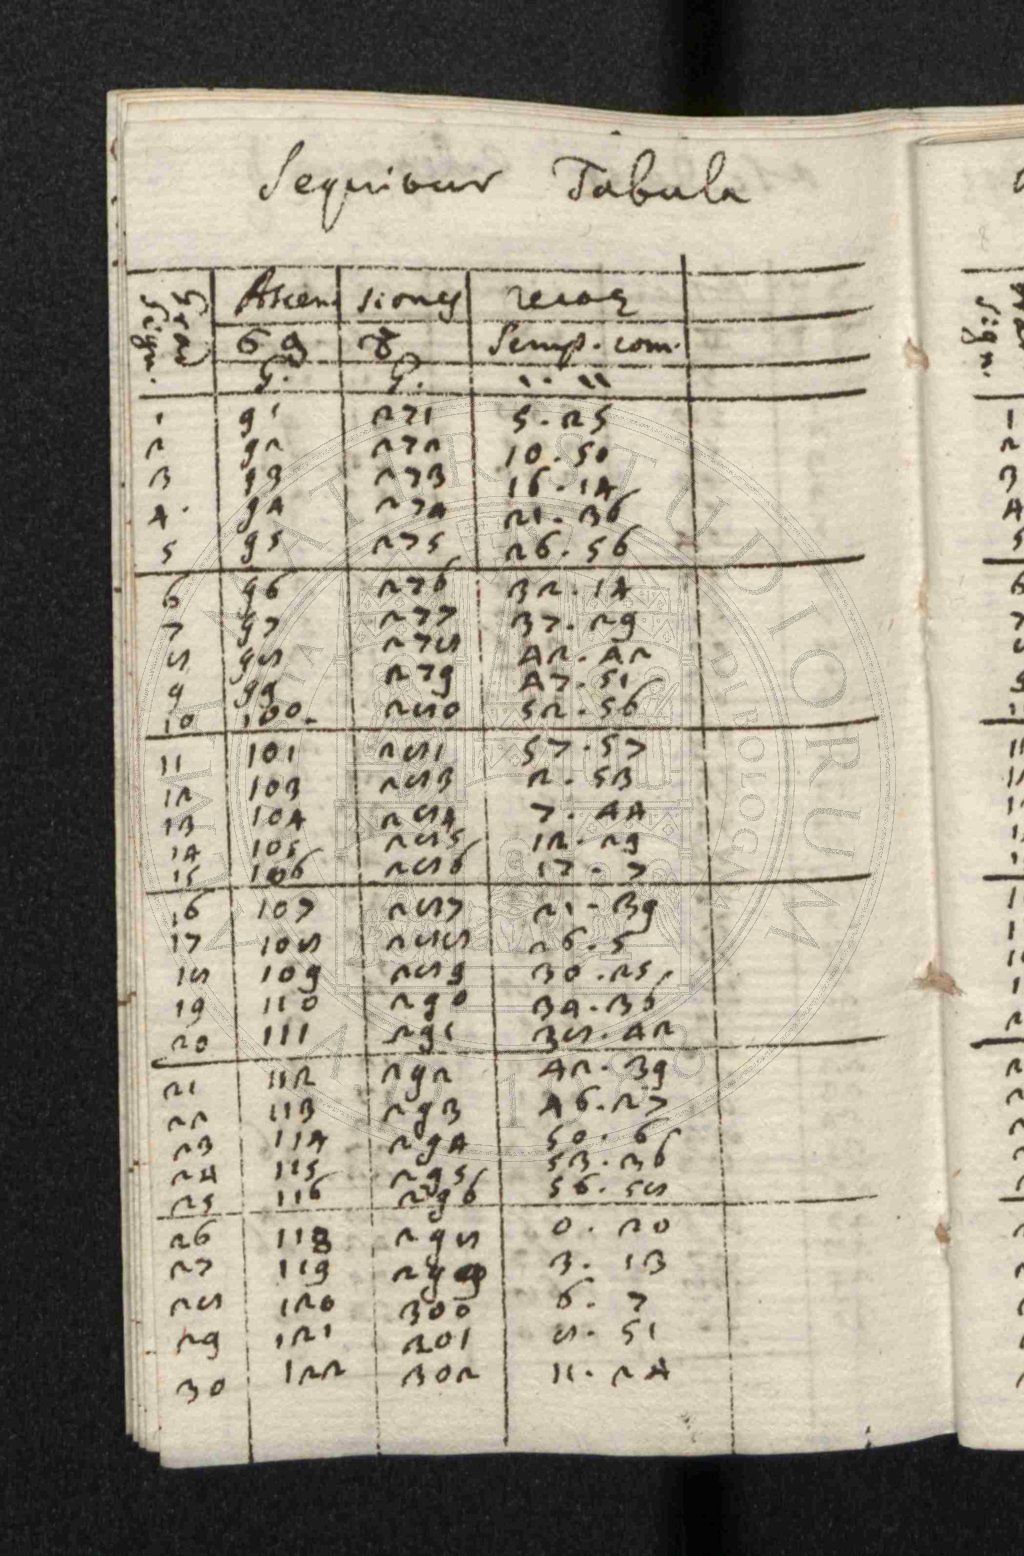 Sequitur Tabula
Grad. Sign. Ascen siones
♋ ♑ com.
G. G. ' . ''
1 91 271 5.25
2 92 272 10.50
3 93 273 16.14
4. 94 274 21.36
5 95 275 26.56
6 96 276 32.14
7 97 277 37.29
8 98 278 42.42
9 99 279 47.51
10 100 280 52.56
11 101 281 57.57
12 103 283 2.53
13 104 284 7.44
14 105 285 12.29
15 106 286 17.7
16 107 287 21.39
17 108 288 26.5
18 109 289 30.25
19 110 290 34.36
20 111 291 38.42
21 112 292 42.39
22 113 293 46.27
23 114 294 50.6
24 115 295 53.36
25 116 296 56.58
26 118 298 0.20
27 119 299 3.13
28 120 300 6.7
29 121 301 8.51
30 122 302 11.24